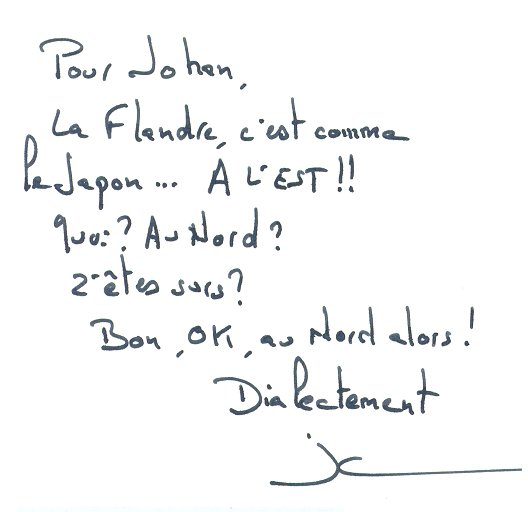 Pour Johan,
La Flandre, c'est comme
le Japon... À L'EST!!
quoi? Au Nord?
z-êtes surs?
Bon, OK, au Nord alors!
Dialectement